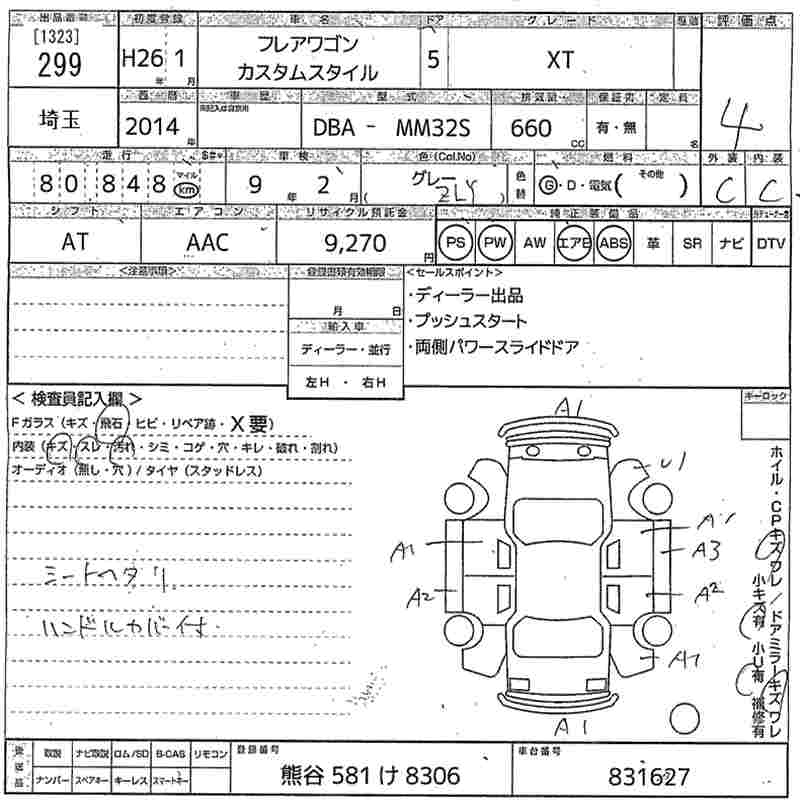 出品番号 初度登録 車名 ドア グレード 評価点
[1323]
299 H26 1 フレアワゴン カスタムスタイル 5 XT
年 月
4
西暦 車歴 型式 排気量 保証書 定員
埼玉 2014 年 DBA - MM32S 660 CC 有・無 名
走行 車検 色(Col.No) 色替 燃料 外装 内装
80848 マイル km 9年 2月 グレー ( ZLY ) G・D・電気( その他 ) C C
シフト エアコン リサイクル預託金 純正装備品
AT AAC 9,270 円 PS PW AW エアB ABS 革 SR ナビ DTV
<注意事項> 登録書類有効期限 <セールスポイント>
月 日
・ディーラー出品
・プッシュスタート
・両側パワースライドドア
輸入車
ディーラー・並行
左H ・ 右H
< 検査員記入欄 >
Fガラス (キズ・飛石 ヒビ・リペア跡・X要)
内装 (キズ・スレ・汚れ・シミ・コゲ・穴・キレ・破れ・割れ)
オーディオ (無し・穴) / タイヤ (スタッドレス)
シートヘタリ
ハンドルカバー付
キーロック
A1
U1
A1
A1 A3
A2 A2
A1
A1
ホイル・CPキズワレ / ドアミラーキズワレ
小キズ有 小U有 補修有
後送品 取説 ナビ取説 ロム/SD B-CAS リモコン
ナンバー スペアキー キーレス スマートキー
登録番号
熊谷 581 け 8306
車台番号
831627